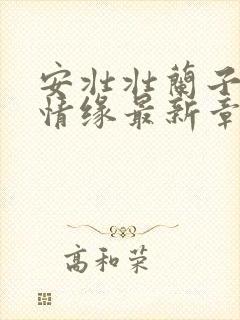 安壮壮蘭子
情缘最新章
高和荣